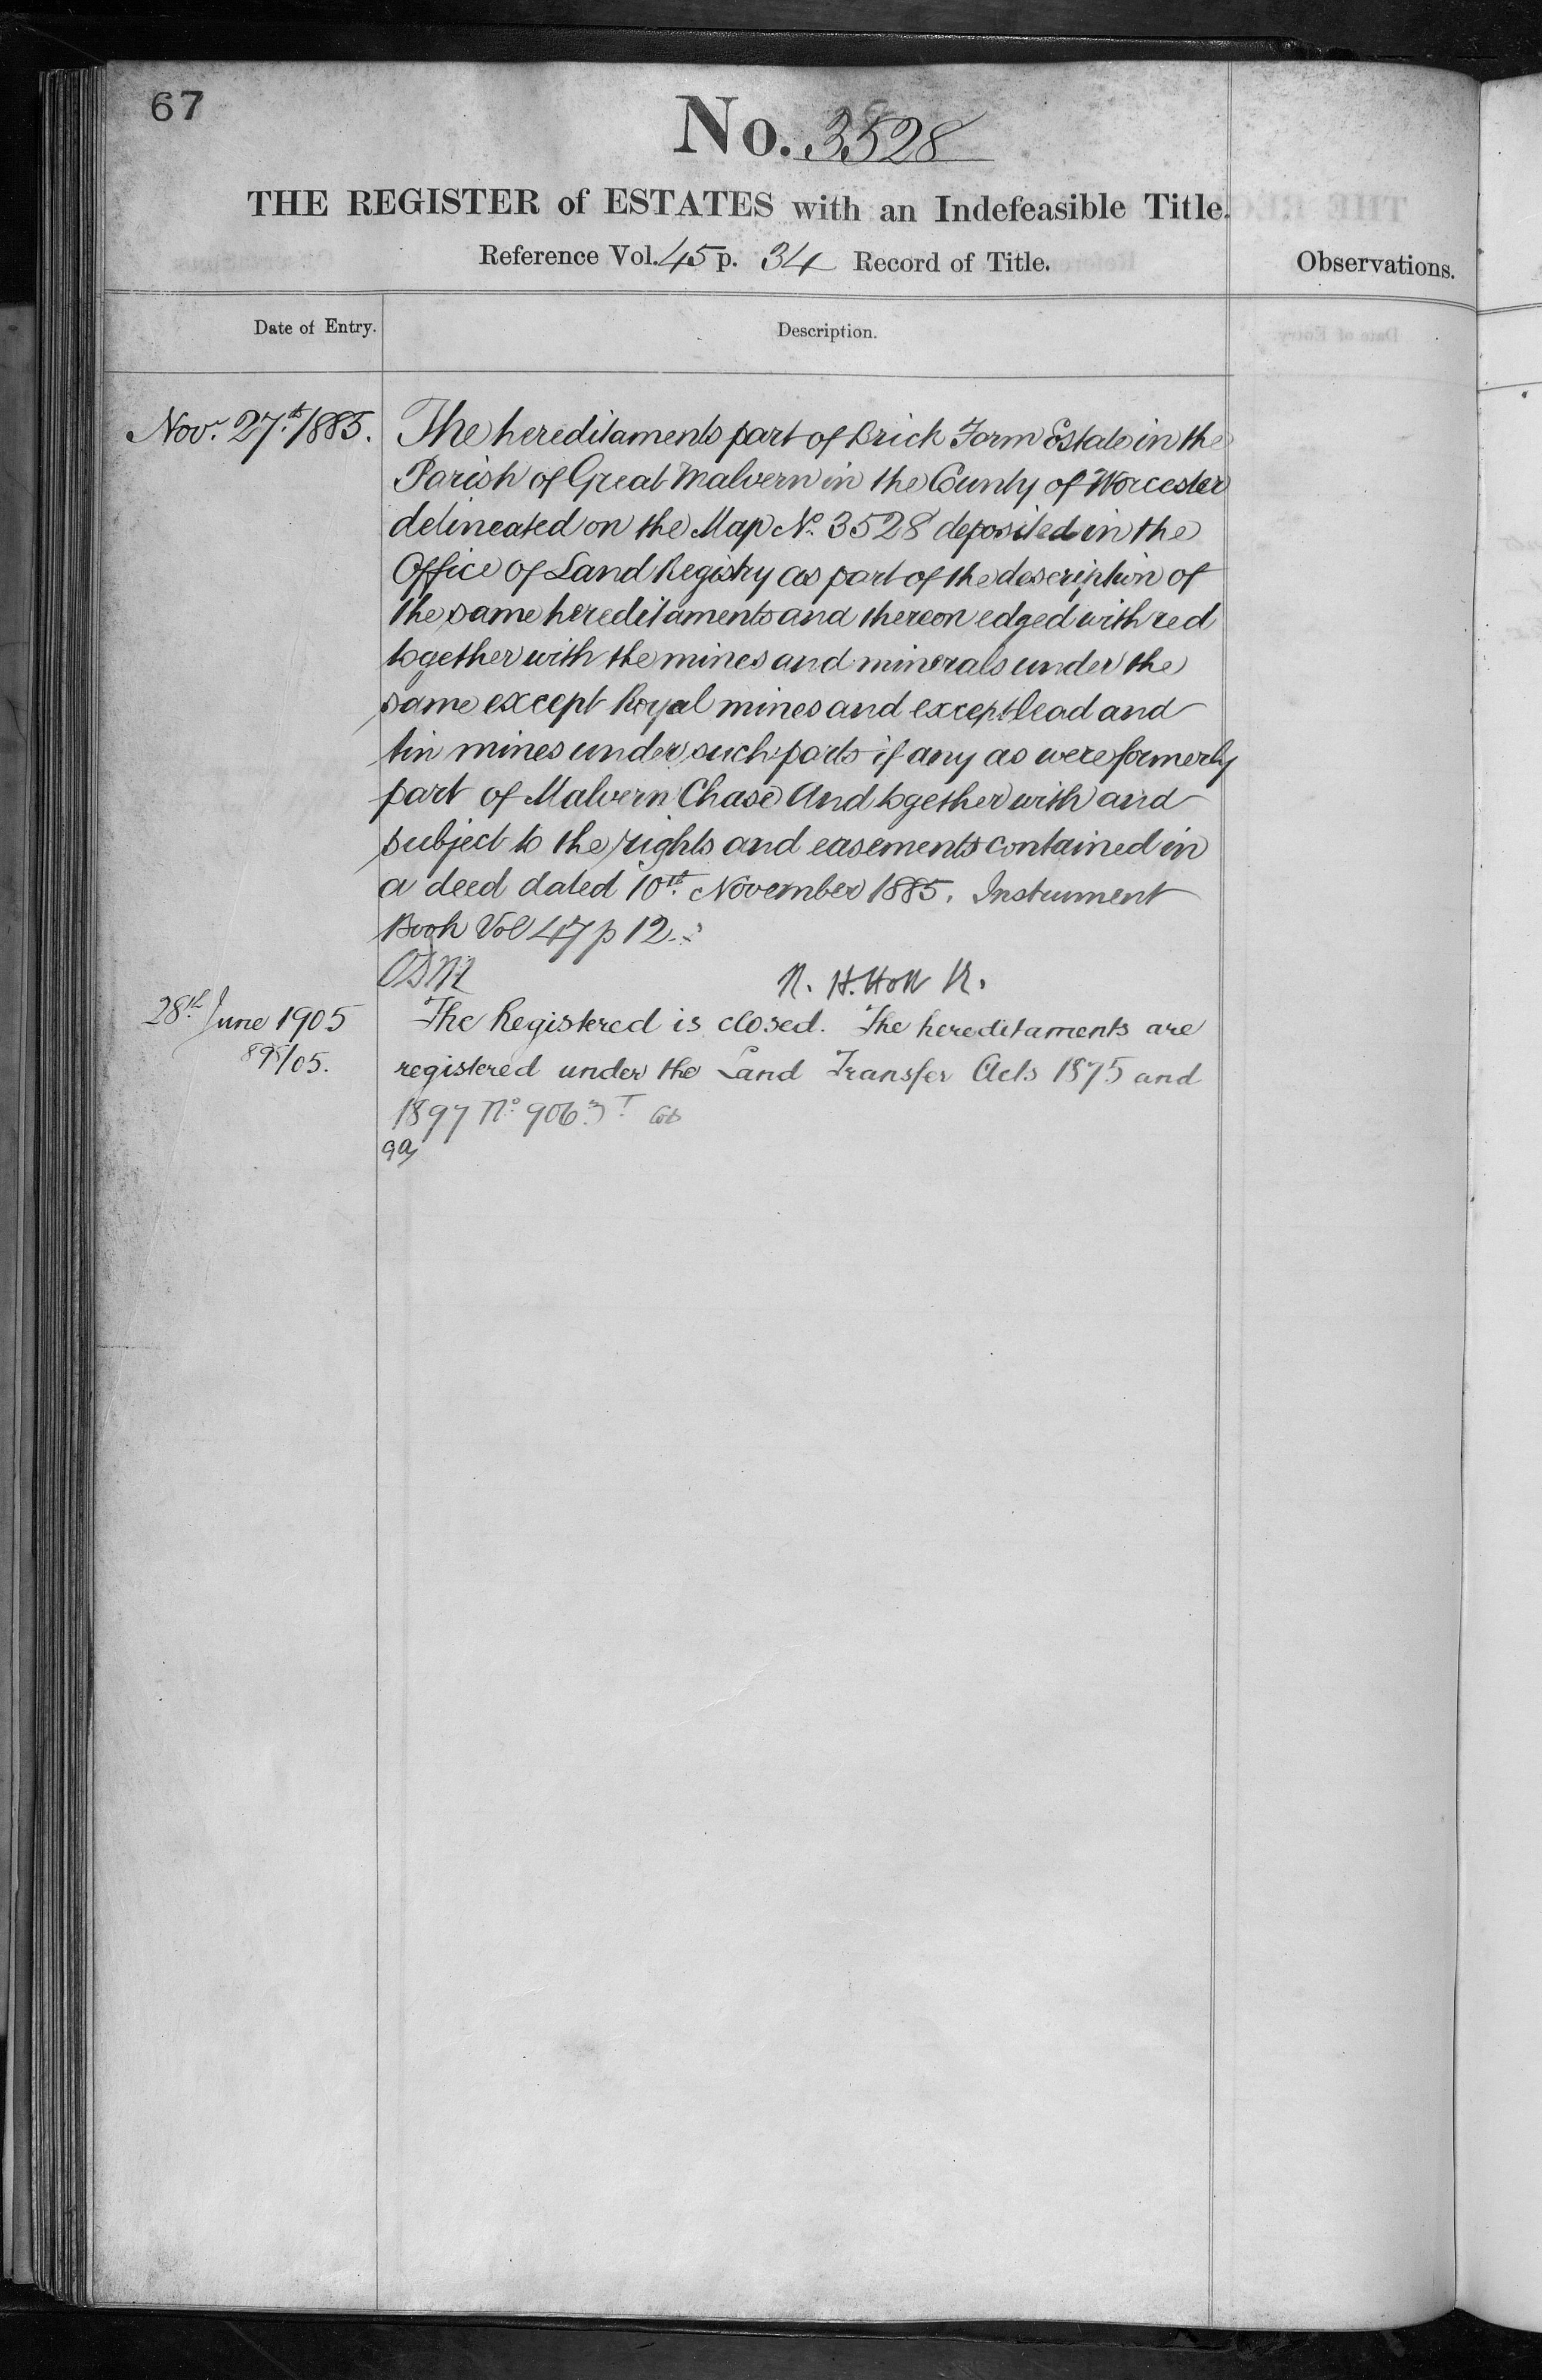 67
No. 3528
THE REGISTER of ESTATES with an Indefeasible Title.
Reference Vol. 45 p. 34 Record of Title.
Observations.
Date of Entry.
Description.
Nov. 27th 1885. The hereditaments part of Brick Farm Estate in the
Parish of Great Malvern in the County of Worcester
delineated on the Map No. 3528 deposited in the
Office of Land Registry as part of the description of
the same hereditaments and thereon edged with red
together with the mines and minerals under the
same except Royal mines and except lead and
tin mines under such parts if any as were formerly
part of Malvern Chase And together with and
subject to the rights and easements contained in
a deed dated 10th November 1885. Instrument
Book Vol 47 p 12.
R. H. Holt R.
28th June 1905 The Registered is closed. The hereditaments are
registered under the Land Transfer Acts 1875 and
1897 No. 9063